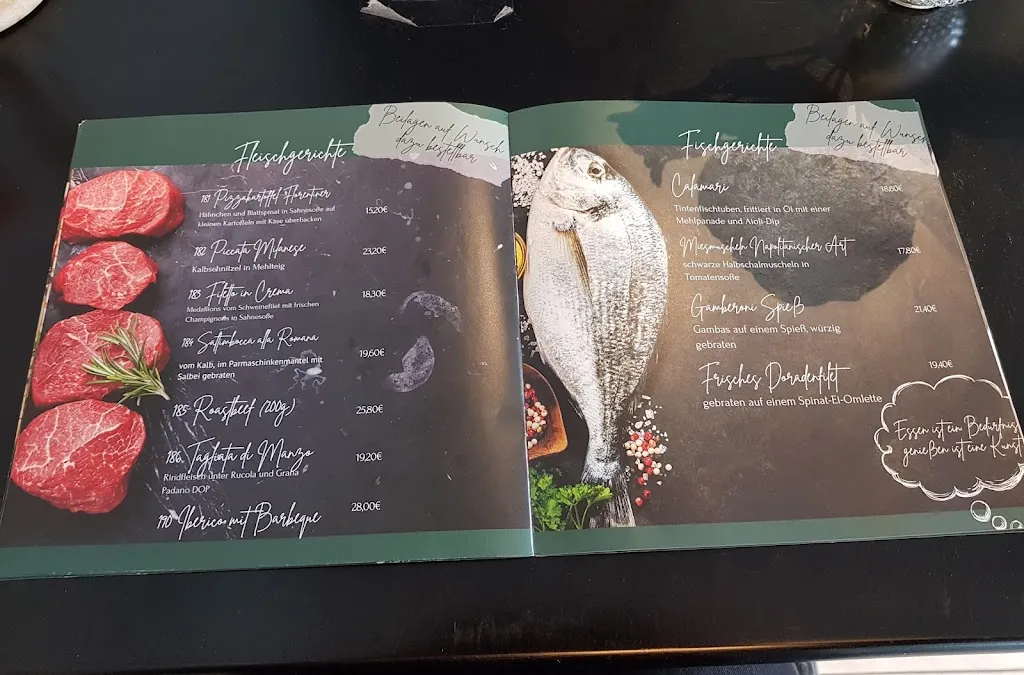 Beilagen auf Wunsch
dazu bestellbar
Fleischgerichte
181 Pizzakartoffel Florentiner
Hähnchen und Blattspinat in Sahnesoße auf
kleinen Kartoffeln mit Käse überbacken
15,20€
182 Piccata Milanese
Kalbsehnitzel in Mehlteig
23,20€
183 Filetto in Crema
Medallions vom Schweinefilet mit frischen
Champignons in Sahnesoße
18,30€
184 Saltimbocca alla Romana
vom Kalb, im Parmaschinkenmantel mit
Salbei gebraten
19,60€
185 Roastbeef (200g)
25,80€
186 Tagliata di Manzo
Rindfleisch unter Rucola und Grana
Padano DOP
19,20€
190 Iberico mit Barbeque
28,00€
Beilagen auf Wunsch
dazu bestellbar
Fischgerichte
Calamari
18,60€
Tintenfischtuben, frittiert in Öl mit einer
Mehlpanade und Aioli-Dip
Miesmuscheln Napolitanischer Art
17,80€
schwarze Halbschalmuscheln in
Tomatensoße
Gamberoni Spieß
21,40€
Gambas auf einem Spieß, würzig
gebraten
Frisches Doradenfilet
19,40€
gebraten auf einem Spinat-Ei-Omlette
Essen ist ein Bedürfnis
genießen ist eine Kunst